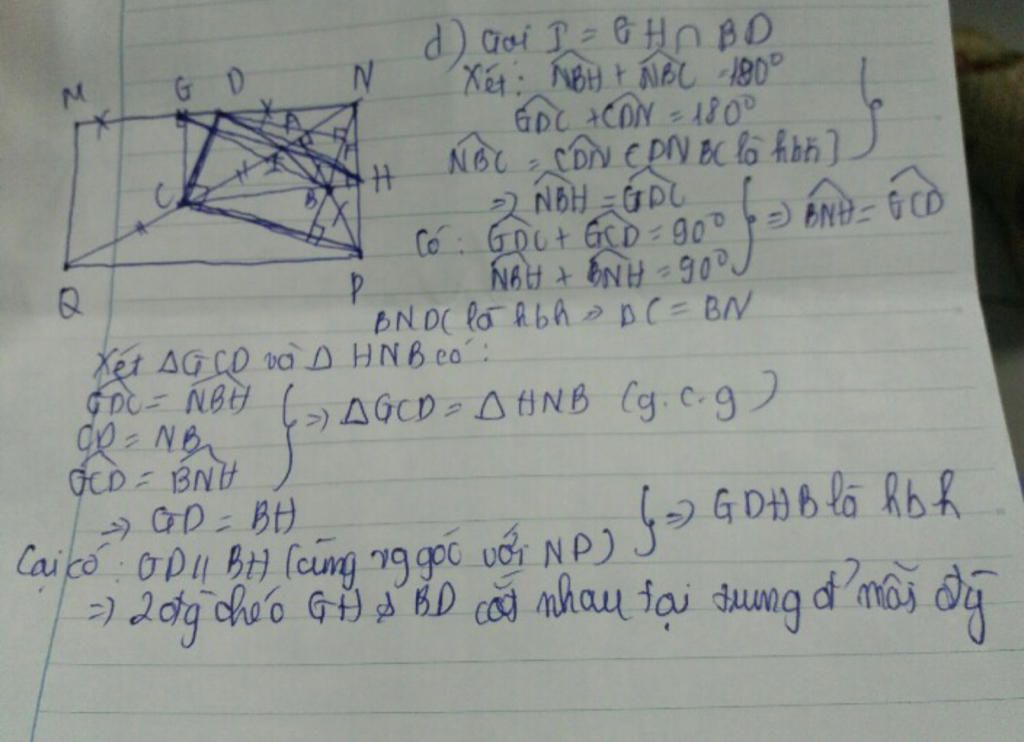 d) Gọi I = GH ∩ BD
Xét: \widehat{NBH} + \widehat{NBC} = 180°
\widehat{GDC} + \widehat{CDN} = 180°
\widehat{NBC} = \widehat{CDN} (DNBC là hbh)
=> \widehat{NBH} = \widehat{GDC}
Có: \widehat{GDC} + \widehat{GCD} = 90° => \widehat{BNH} = \widehat{GCD}
\widehat{NBH} + \widehat{BNH} = 90°
BNDC là hbh => DC = BN
M G D N
A
I
C B H
Q P
Xét ΔGCD và Δ HNB có:
\widehat{GDC} = \widehat{NBH}
CD = NB => ΔGCD = Δ HNB (g.c.g)
\widehat{GCD} = \widehat{BNH}
=> GD = BH => GDHB là hbh
Lại có: GD // BH (cùng vg góc với NP)
=> 2 đg chéo GH & BD cắt nhau tại trung đ' mỗi đg